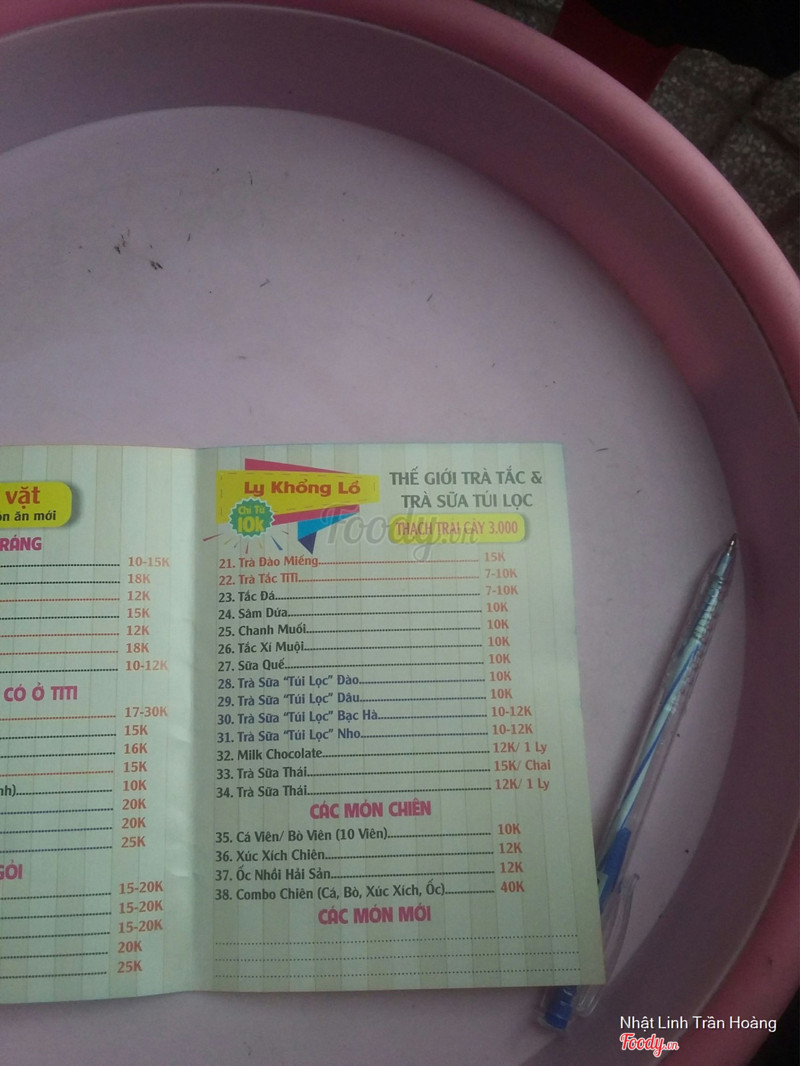 vặt
ón ăn mới
RÁNG
10-15K
18K
12K
15K
12K
18K
10-12K
CÓ Ở TITI
17-30K
15K
16K
15K
nh) 10K
20K
20K
25K
GỎI
15-20K
15-20K
15-20K
20K
25K
Ly Khổng Lồ
Chỉ Từ
10k
THẾ GIỚI TRÀ TẮC &
TRÀ SỮA TÚI LỌC
THẠCH TRÁI CÂY 3.000
Foody.vn
21. Trà Đào Miếng 15K
22. Trà Tắc TITI 7-10K
23. Tắc Đá 7-10K
24. Sâm Dứa 10K
25. Chanh Muối 10K
26. Tắc Xí Muội 10K
27. Sữa Quế 10K
28. Trà Sữa “Túi Lọc” Đào 10K
29. Trà Sữa “Túi Lọc” Dâu 10K
30. Trà Sữa “Túi Lọc” Bạc Hà 10-12K
31. Trà Sữa “Túi Lọc” Nho 10-12K
32. Milk Chocolate 12K/ 1 Ly
33. Trà Sữa Thái 15K/ Chai
34. Trà Sữa Thái 12K/ 1 Ly
CÁC MÓN CHIÊN
35. Cá Viên/ Bò Viên (10 Viên) 10K
36. Xúc Xích Chiên 12K
37. Ốc Nhồi Hải Sản 12K
38. Combo Chiên (Cá, Bò, Xúc Xích, Ốc) 40K
CÁC MÓN MỚI
Nhật Linh Trần Hoàng
Foody.vn